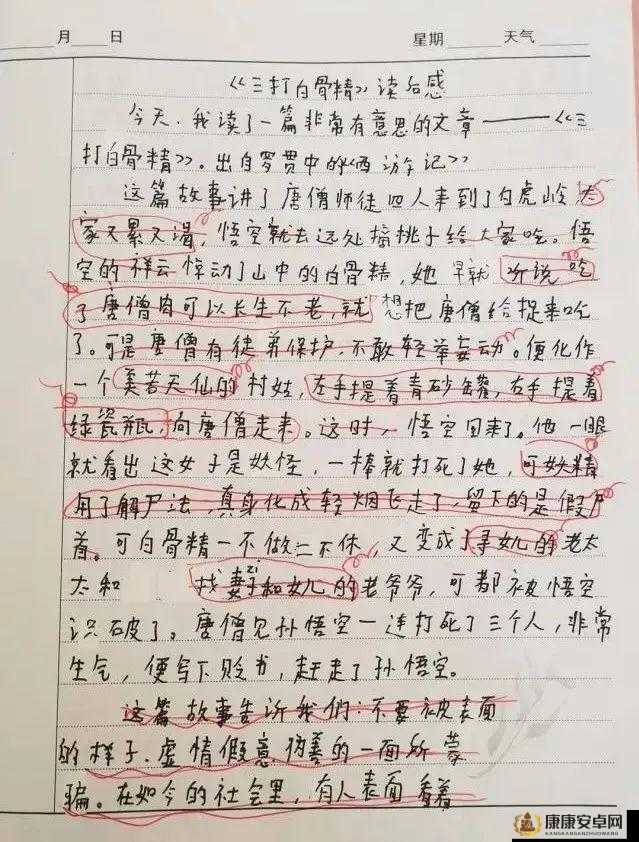 月 日 星期 天气
《三打白骨精》读后感
今天,我读了一篇非常有意思的文章——《三
打白骨精》。出自罗贯中的《西游记》
这篇故事讲了唐僧师徒四人来到了白虎岭大
家又累又渴,悟空就去远处摘桃子给大家吃。悟
空的祥云惊动了山中的白骨精,她早就听说吃
了唐僧肉可以长生不老,就想把唐僧给捉来吃
了。可是唐僧有徒弟保护,不敢轻举妄动。便化作
一个美若天仙的村姑,左手提着青砂罐,右手提着
绿瓷瓶,向唐僧走来。这时,悟空回来了。他一眼
就看出这女子是妖怪,一棒就打死了她,可妖精
用了解尸法,真身化成轻烟飞走了,留下的是假尸
首。可白骨精一不做二不休,又变成了寻女儿的老太
太和 找妻子和女儿的老爷爷,可都被悟空
识破了。唐僧见孙悟空一连打死了三个人,非常
生气,便写下贬书,赶走了孙悟空。
这篇故事告诉我们:不要被表面
的样子、虚情假意伪善的一面所蒙
骗。在如今的社会里,有人表面看着
康康安卓网
KANGKANGANZHUOWANG